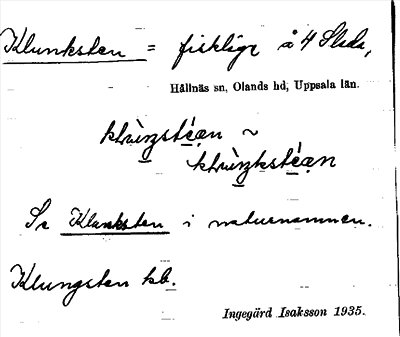 Klunksten = fiskläge å 4 Slada,
Hållnäs sn, Olands hd, Uppsala län.
klùŋstéạn ~
klùŋkstéạn
Se Klunksten i naturnamnen.
Klungsten kb.
Ingegärd Isaksson 1935.